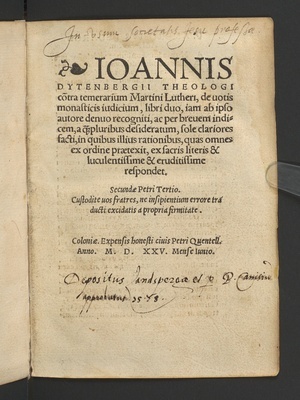 In usum societatis Jesu
IOANNIS
DYTENBERGII THEOLOGI
cōtra temerarium Martini Lutheri, de uotis
monasticis iudicium, libri duo, iam ab ipso
autore denuo recogniti, ac per breuem indi-
cem, a q̄pluribus desideratum, sole clariores
facti, in quibus illius rationibus, quas omnes
ex ordine prætexit, ex sacris literis &
luculentissime & eruditissime
respondet,
Secundæ Petri Tertio.
Custodite uos fratres, ne insipientium errore tra
ducti excidatis a propria firmitate.
Coloniæ. Expensis honesti ciuis Petri Quentell.
Anno. M. D. XXV. Mense Iunio.
Depositus Landspergæ